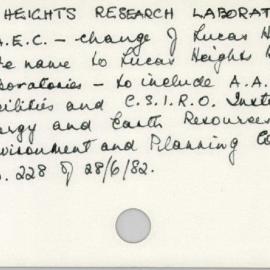 HEIGHTS RESEARCH LABORAT
A.E.C. - change of Lucas H
name to Lucas Heights
aboratories - to include A.A.
cilities and C.S.I.R.O. Instit
ergy and Earth Resources
vironment and Planning Co
o. 228 of 28/6/82.